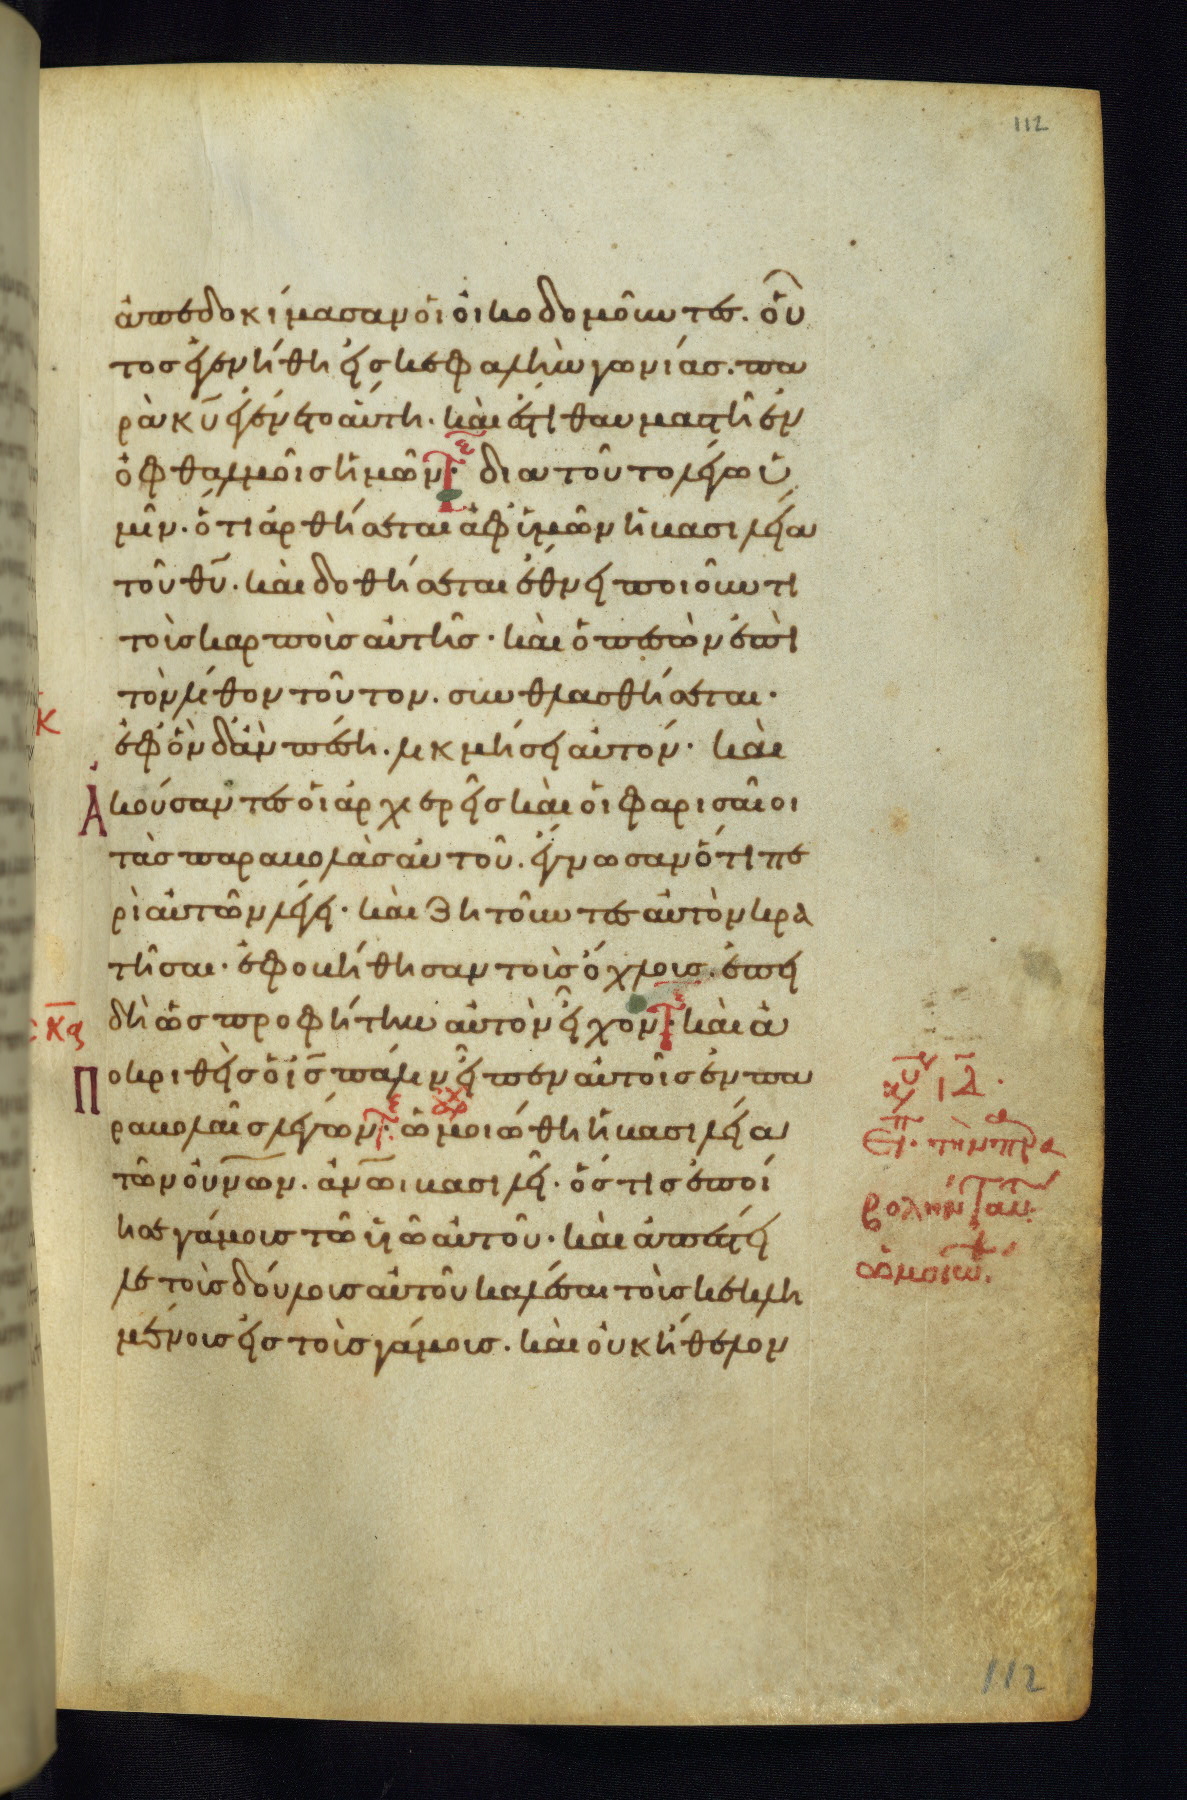 112
ἀπεδοκίμασαν οἱ οἰκοδομοῦντες. οὗ
τος ἐγενήθη εἰς κεφαλὴν γωνίας. πα
ρὰ κ̅υ̅ ἐγένετο αὕτη. καὶ ἔστι θαυμαστὴ ἐν
ὀφθαλμοῖς ἡμῶν· διατοῦτο λέγω ὑ
μῖν. ὅτι ἀρθήσεται ἀφ' ὑμῶν ἡ βασιλεία
τοῦ θ̅υ̅. καὶ δοθήσεται ἔθνει ποιοῦντι
τοὺς καρποὺς αὐτῆς· καὶ ὁ πεσὼν ἐπὶ
τὸν λίθον τοῦτον. συνθλασθήσεται·
ἐφ' ὃν δ' ἂν πέσῃ. λικμήσει αὐτόν· καὶ
ἀκούσαντες οἱ ἀρχιερεῖς καὶ οἱ φαρισαῖοι
τὰς παραβολὰς αὐτοῦ. ἔγνωσαν ὅτι πε
ρὶ αὐτῶν λέγει· καὶ ζητοῦντες αὐτὸν κρα
τῆσαι. ἐφοβήθησαν τοὺς ὄχλους. ἐπει
δὴ ὡς προφήτην αὐτὸν εἶχον· καὶ ἀ
ποκριθεὶς ὁ ι̅ς̅ πάλιν εἶπεν αὐτοῖς ἐν πα
ραβολαῖς λέγων· ὡμοιώθη ἡ βασιλεία
τῶν οὐνῶν. ἀνω̅ βασιλεῖ. ὅστις ἐποί
ησε γάμους τῶ υἱῶ αὐτοῦ. καὶ ἀπέστει
λε τοὺς δούλους αὐτοῦ καλέσαι τοὺς κεκλη
μένους εἰς τοὺς γάμους. καὶ οὐκ ἤθελον
κυ ιδ.
ει. τὴν πρα
βολὴν ταυ.
ὡμοιώ.
112